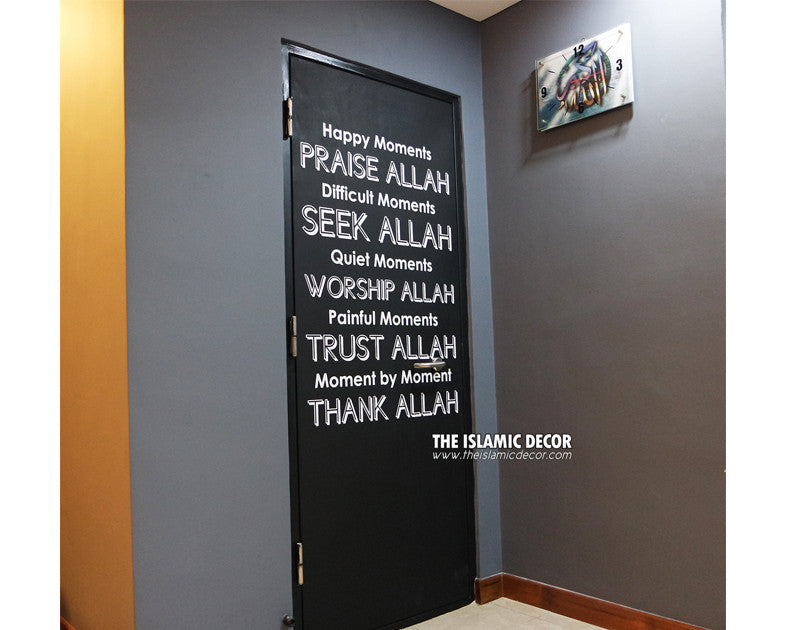 Happy Moments
PRAISE ALLAH
Difficult Moments
SEEK ALLAH
Quiet Moments
WORSHIP ALLAH
Painful Moments
TRUST ALLAH
Moment by Moment
THANK ALLAH
12
9
3
THE ISLAMIC DECOR
www.theislamicdecor.com